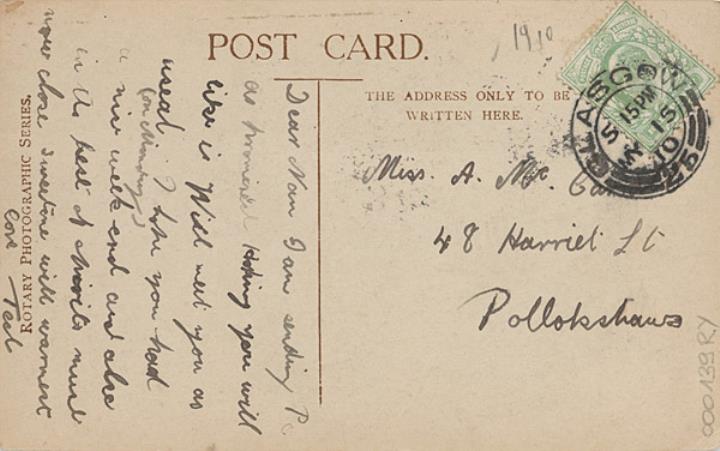 1910
POST CARD.
THE ADDRESS ONLY TO BE
WRITTEN HERE.
GLASGOW
5 15 PM
10
25
Miss. A. Mc.
48 Harriet St
Pollokshaws
Dear Nan I am sending P.C
as promised Hoping you will
like is Will meet you as
useal I hope you had
(on Monday)
a nice week end and also
in the best of spirits must
now close sweetine with warmest
love Ted
ROTARY PHOTOGRAPHIC SERIES.
000139RY